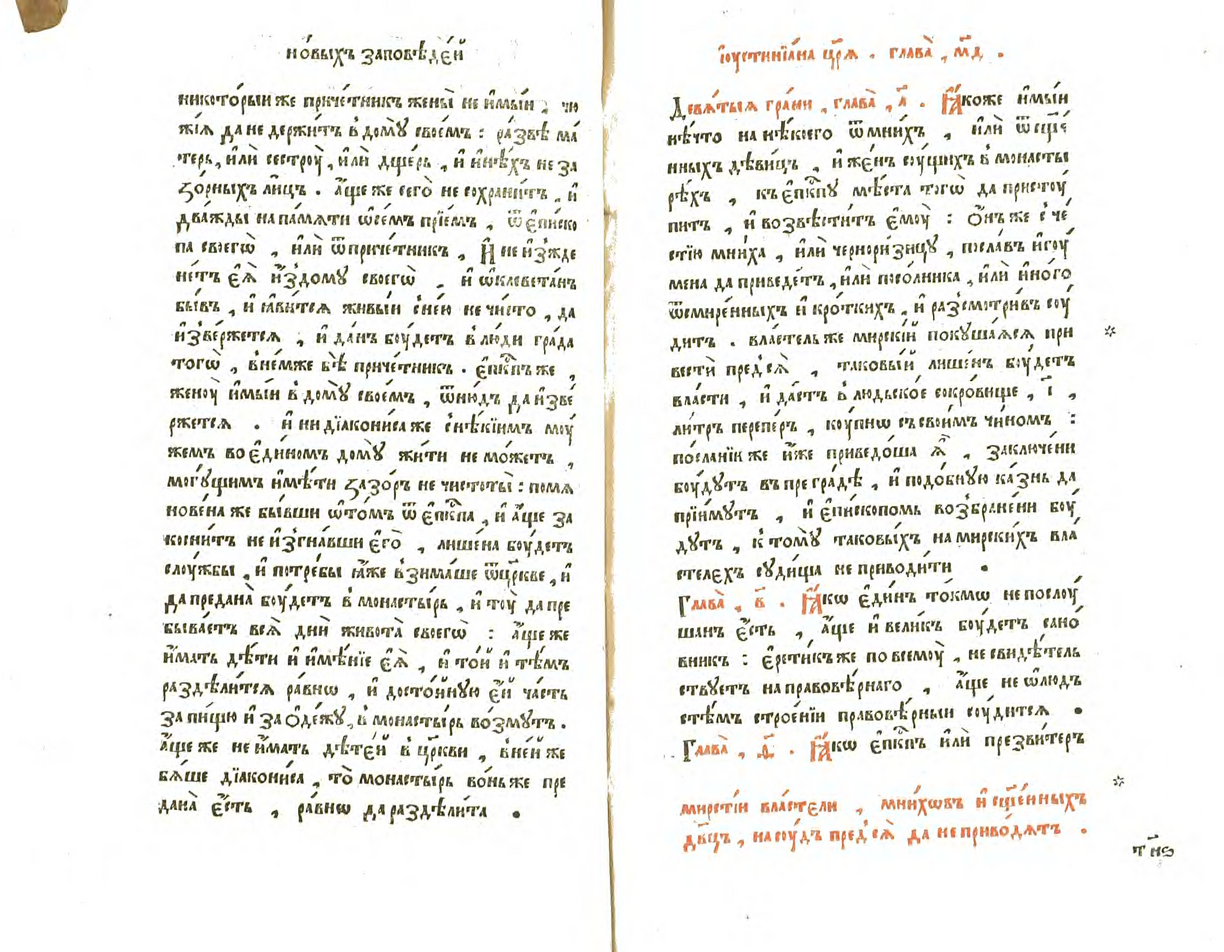 но́выхъ заповѣде́й
никото́рыи же приче́тникъ жены̀ не и҆мы́и , чю
жі́ѧ да не держи́тъ в̾ до́мꙋ свое́мъ : ра́звѣ ма́
терь, и҆лѝ сестроу̀, и҆лѝ дще́рь , и҆ и҆нѣ́хъ не за
ꙁо́рныхъ ли́цъ . а҆́ще же сего̀ не сохрани́тъ , и҆
два́жды на па́мѧти ѡ҆ се́мъ прїе́мъ , ѿ є҆пи́ско
па своегѡ̀ , и҆лѝ ѿ приче́тникъ , И҆ не и҆зжде
не́тъ є҆ѧ̀ и҆з̾ до́мꙋ своегѡ̀ , и҆ ѡ҆клевета́нъ
бы́въ , и҆ ꙗ҆ви́тсѧ живы́и с̾ не́ю не чи́сто , да
и҆зве́ржетсѧ , и҆ да́нъ боу́детъ в̾ лю́ди гра́да
тогѡ̀ , в̾ не́мже бѣ̀ приче́тникъ . є҆пⷭ҇кпъ же ,
женоу̀ и҆мы́и в̾ до́мꙋ свое́мъ , ѿню́дъ да и҆зве́
ржетсѧ . и҆ ни дїакони́са же с̾ нѣ́кїимъ моу́
жемъ во є҆ди́номъ до́мꙋ жи́ти не мо́жетъ ,
могꙋ́щимъ и҆мѣ́ти ꙁазо́ръ не чистоты̀ : помѧ
нове́на же бы́вши ѡ҆ то́мъ ѿ є҆пⷭ҇кпа , и҆ а҆́ще за
косни́тъ не и҆згна́вши є҆го̀ , лише́на боу́детъ
слоу́жбы , и҆ потре́бы ꙗ҆́же в̾зима́ше ѿ цр҃кве , и҆
да предана̀ боу́детъ в̾ монасты́рь , и҆ тоу̀ да пре
быва́етъ всѧ̀ дни̑ живота̀ своегѡ̀ : а҆́ще же
и҆́мать дѣ́ти и҆ и҆мѣ́нїе є҆ѧ̀ , и҆ то́и и҆ тѣ́мъ
раздѣли́тсѧ ра́внѡ , и҆ досто́йнꙋю є҆́й ча́сть
за пи́щю и҆ за ѻ҆де́жꙋ, в̾ монасты́рь во́змꙋтъ .
а҆́ще же не и҆́мать дѣте́й в̾ цр҃кви , в̾ не́йже
бѧ́ше дїакони́са , то̀ монасты́рь во́ньже пре
дана̀ є҆́сть , ра́внѡ да раздѣли́та .
і҆оустинїа́на цр҃ѧ . глава̀ , м҃д .
Девѧ́тыѧ гра́ни , глава̀ , а҃ . Ꙗ҆́коже и҆мы́и
нѣ́что на нѣ́коего ѿ мни́хъ , и҆лѝ ѿ сщ҃е́
нныхъ дѣви́цъ , и҆ же́нъ соу́щихъ в̾ монасты
рѣ́хъ , къ є҆пⷭ҇кпꙋ мѣ́ста тогѡ̀ да пристоу́
питъ , и҆ возвѣсти́тъ є҆моу̀ : Ѻ҆́нъ же с̾ че́
стїю мни́ха , и҆лѝ чернори́зицꙋ , посла́въ и҆гоу́
мена да приведе́тъ , и҆лѝ посо́лника , и҆лѝ и҆но́го
ѿ смире́нныхъ и҆ кро́ткихъ , и҆ разсмотри́въ соу́
дитъ . вла́стель же мирскі́й покꙋша́ѧсѧ при
вестѝ пред̾ сѧ̀ , таковы́й лише́нъ боу́детъ
вла́сти , и҆ да́стъ в̾ людьско́е сокро́вище , і҃ ,
ли́тръ перпе́ръ , коу́пнѡ съ свои́мъ чи́номъ :
по́сланїи же и҆̀же приведо́ша ѧ҆̀ , заключе́ни
боу́дꙋтъ въ прегра́дѣ , и҆ подо́бнꙋю ка́знь да
прїи́мꙋтъ , и҆ є҆пи́скопомь возбране́ни боу́
дꙋтъ , к̾ томꙋ̀ таковы́хъ на мирски́хъ вла
стеле́хъ сꙋди́ща не приводи́ти .
Глава̀ , в҃ . Ꙗ҆́кѡ є҆ди́нъ то́кмѡ не послоу́
шанъ є҆́сть , а҆́ще и҆ вели́къ боу́детъ сано́
вникъ : є҆рети́къ же по всемоу̀ , не свидѣ́тель
ствꙋетъ на правовѣ́рнаго , а҆́ще не ѡ҆ лю́дъ
стѣ́мъ строе́нїи правовѣ́рныи соу́дитсѧ .
Глава̀ , г҃ . Ꙗ҆́кѡ є҆пⷭ҇кпъ и҆лѝ презви́теръ
мирсті́и вла́стели , мни́хѡвъ и҆ сщ҃е́нныхъ
дв҃цъ , на соу́дъ пред̾ сѧ̀ да не приво́дѧтъ .
т҃нѕ